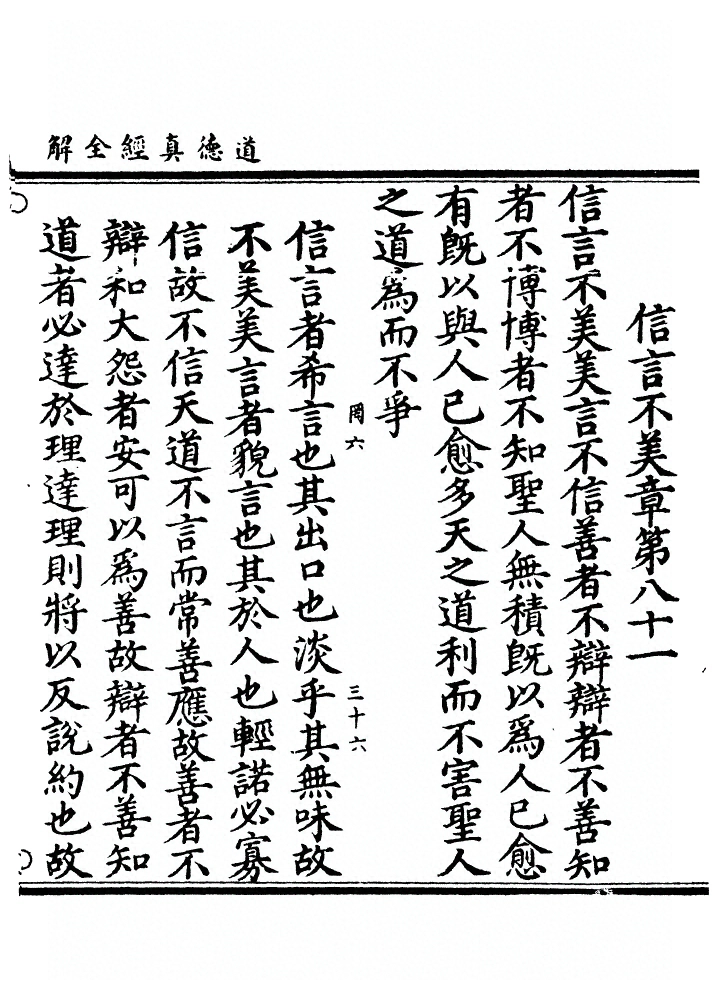 道德真經全解
信言不美章第八十一
信言不美美言不信善者不辯辯者不善知
者不博博者不知聖人無積旣以爲人已愈
有旣以與人已愈多天之道利而不害聖人
之道爲而不爭
罔六
三十六
信言者希言也其出口也淡乎其無味故
不美美言者貌言也其於人也輕諾必寡
信故不信天道不言而常善應故善者不
辯和大怨者安可以爲善故辯者不善知
道者必達於理達理則將以反說約也故